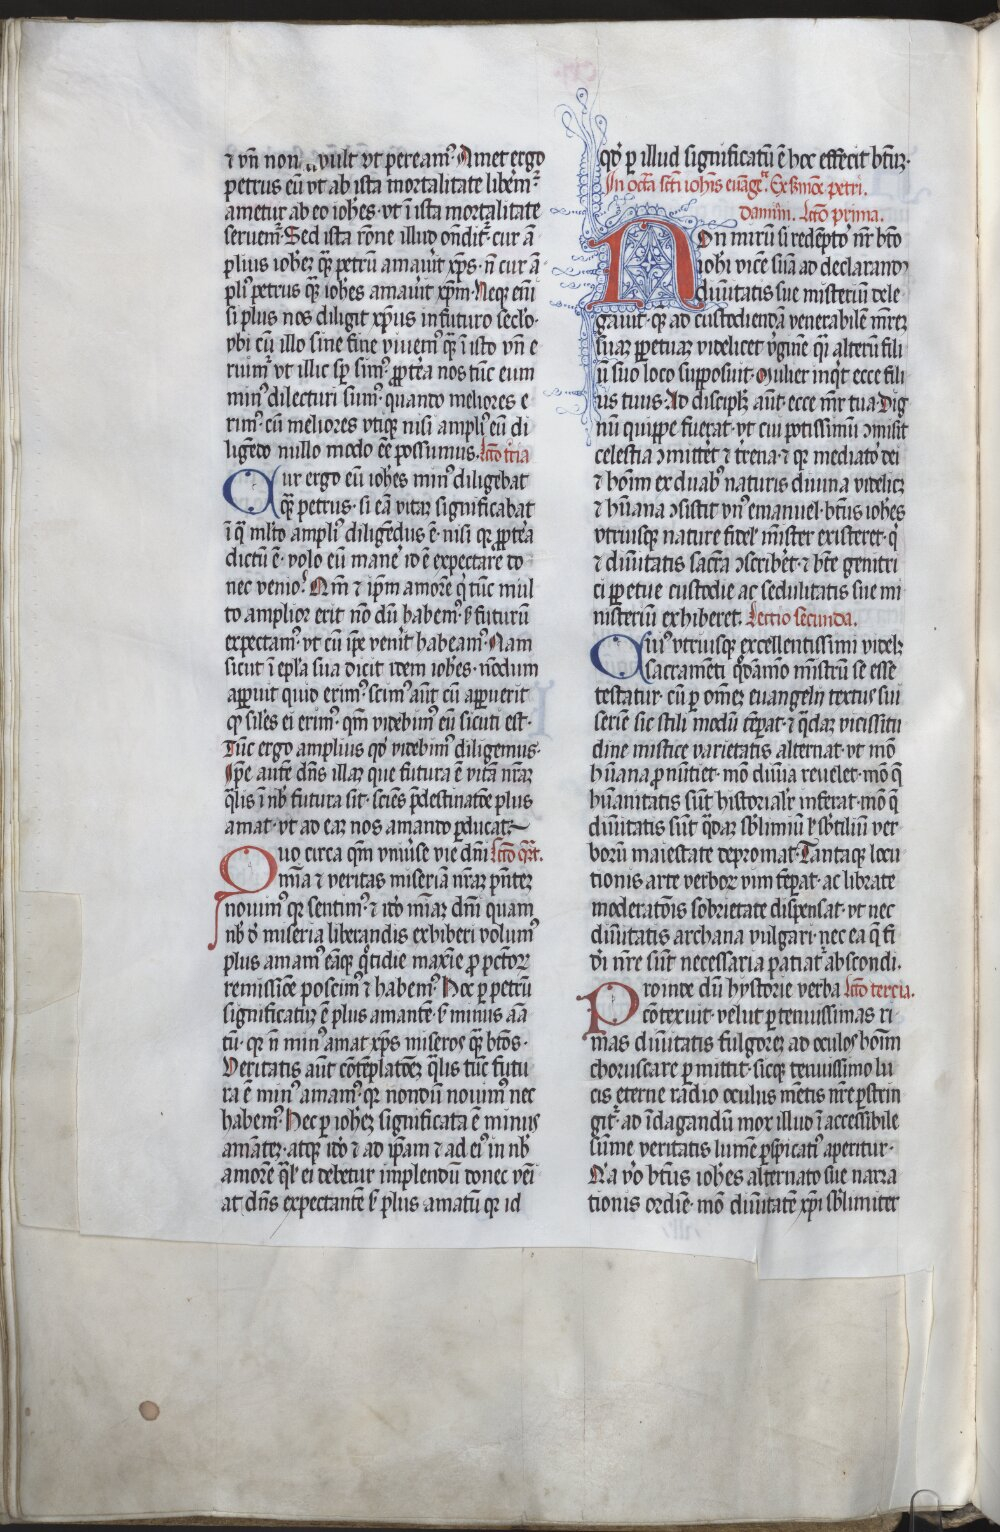 ⁊ vn̄ non vult vt peream᷒. Amet ergo
petrus eū vt ab ista mortalitate liberm̄᷒
ametur ab eo ioh̄es. vt ī ista mortalitate
seruem᷒. Sed ista rōne illud ōndit᷒ cur ā
plius ioh̄ez q̄ꝫ petrū amauit xp̄s. n̄ cur ā
pli᷒ petrus q̄ꝫ ioh̄es amauit xp̄m. Neqꝫ eni
si plus nos diligit xp̄us in futuro sec̄lo.
vbi cū illo sine fine viuem᷒ q̄ꝫ ī isto vn̄ e
ruim᷒ vt illic sp̄ sim᷒. ꝓpt̄ea nos tūc eum
min᷒ dilecturi sum᷒. quanto meliores e
rim᷒. cū meliores vtiqꝫ nisi ampli᷒ eū di
ligēdo nullo modo ēe possumus. Lcō t̄cia
Cur ergo eū ioh̄es min᷒ diligebat
q̄ꝫ petrus. si eā vitaꝫ significabat
ī q̄ ml̄to ampli᷒ diligēdus ē. nisi qꝛ ꝓpt̄ea
dictū ē. volo eū mane᷒ id ē expectare do
nec venio. Nm̄ ⁊ ip̄m amorē q̄ tūc mul
to amplior erit nō dū habem᷒. ẜ futurū
expectam᷒. vt cū ip̄e venit habeam᷒. Nam
sicut ī ep̄la sua dicit idem ioh̄es. nōdum
apparuit quid erim᷒. scim᷒ aūt cū apparuerit
ꝙ sil̄es ei erim᷒. qm̄ videbim᷒ eū sicuti est.
Tūc ergo amplius qd̄ videbim᷒ diligemus.
Ip̄e autē dn̄s illaꝫ que futura ē vitā nr̄aꝫ
q̄lis ī nb̄ futura sit. sciēs p̄destinatōe plus
amat. vt ad eaꝫ nos amando ꝑducat.
Quo circa qm̄ vniu᷒se vie dn̄i Lcō q̄rt.
mīa ⁊ veritas miseriā nr̄aꝫ p̄ntez
nouim᷒ qꝛ sentim᷒. ⁊ iō miaꝫ dn̄i quam
nb̄ d᷒ miseria liberandis exhiberi volum᷒
plus amam᷒ eāqꝫ q̄tidie maxīe ꝓ pctōꝝ
remissiōe poscim᷒ ⁊ habem᷒. Hoc ꝑ petrū
significatū ē plus amantē. ẜ minus am̄a
tū. qꝛ n̄ min᷒ amat xp̄s miseros q̄ꝫ btōs.
Veritatis aūt cōtēplatōeꝫ q̄lis tūc futu
ra ē min᷒ amam᷒. qꝛ nondū nouim᷒ nec
habem᷒. Hec ꝑ ioh̄ez significata ē minus
amātez. atqꝫ iō ⁊ ad ip̄am ⁊ ad ei᷒ in nb̄
amorē q̄l᷒ ei debetur implendū donec vēi
at dn̄s expectantē ẜ plus amatū qꝛ id
qd̄ ꝑ illud significatū ē hoc efficit btūꝫ.
In octa scti ioh̄is euāgᵉ. Ex s̄mōe petri
damini. Lcō prima.
Non mirū si redēptoꝛ nr̄ btō
ioh̄i vicē suā ad declarandū
diuītatis sue misteriū dele
gauit. qꝛ ad custodiendā venerabilē mr̄eꝫ
suaꝫ ꝑpetuaꝫ videlicet v̄ginē q̄i alterū fili
ū suo loco supposuit. Mulier inq̄t ecce fili
us tuus. Ad discipl᷒z aūt. ecce mr̄ tua. Dig
nū quippe fuerat. vt cui potissimū ꝯmisit
celestia ꝯmittet ⁊ t̄rena. ⁊ qꝛ mediatoꝛ dei
⁊ hoīm ex duab᷒ naturis diuina videlicꝫ
⁊ hūana ꝯsistit vn᷒ emanuel. btūs ioh̄es
vtriusqꝫ nature fidel᷒ mīster existeret. q̄
⁊ diuītatis sacr̄a ꝯscribet. ⁊ bt̄e genitri
ci ꝑpetue custodie ac sedulitatis sue mi
nisteriū exhiberet. Lectio secunda.
Cui᷒ vtriusqꝫ excellentissimi videlꝫ
sacramēti q̄dāmō mīstrū se esse
testatur. cū ꝑ om̄eꝫ euangelij textus sui
seriē sic stili modū tēpat. ⁊ q̄daꝫ vicissitu
dine mistice varietatis alternat. vt mō
hūana ꝓnūtiet. mō diuīa reuelet. mō q̄
hūanitatis sūt historial᷒r inferat. mō q̄
diuītatis sūt q̄daꝫ sb̄limiū ẜ sb̄tiliū ver
borū maiestate depromat. Tantaqꝫ locu
tionis arte verboꝝ vim tēpat. ac librate
moderatōis sobrietate dispēsat. vt nec
diuītatis archana vulgari. nec ea q̄ fi
dei nr̄e sūt necessaria patiat᷒ abscondi.
Proinde dū hystorie verba Lcō tercia.
cōtexuit. velut ꝑ tenuissimas ri
mas diuītatis fulgoreꝫ ad oculos hoīm
choruscare ꝑmittit. sicqꝫ tenuissimo lu
cis eterne radio oculus mētis nr̄e ꝑstrin
git᷒. ad īdagandū mox illud ī accessibile
sūme veritatis lumē ꝑspicati᷒ aperitur.
Nā v᷒o btūs ioh̄es alternato sue narra
tionis ordīe. mō diuītatē xp̄i sb̄limiter